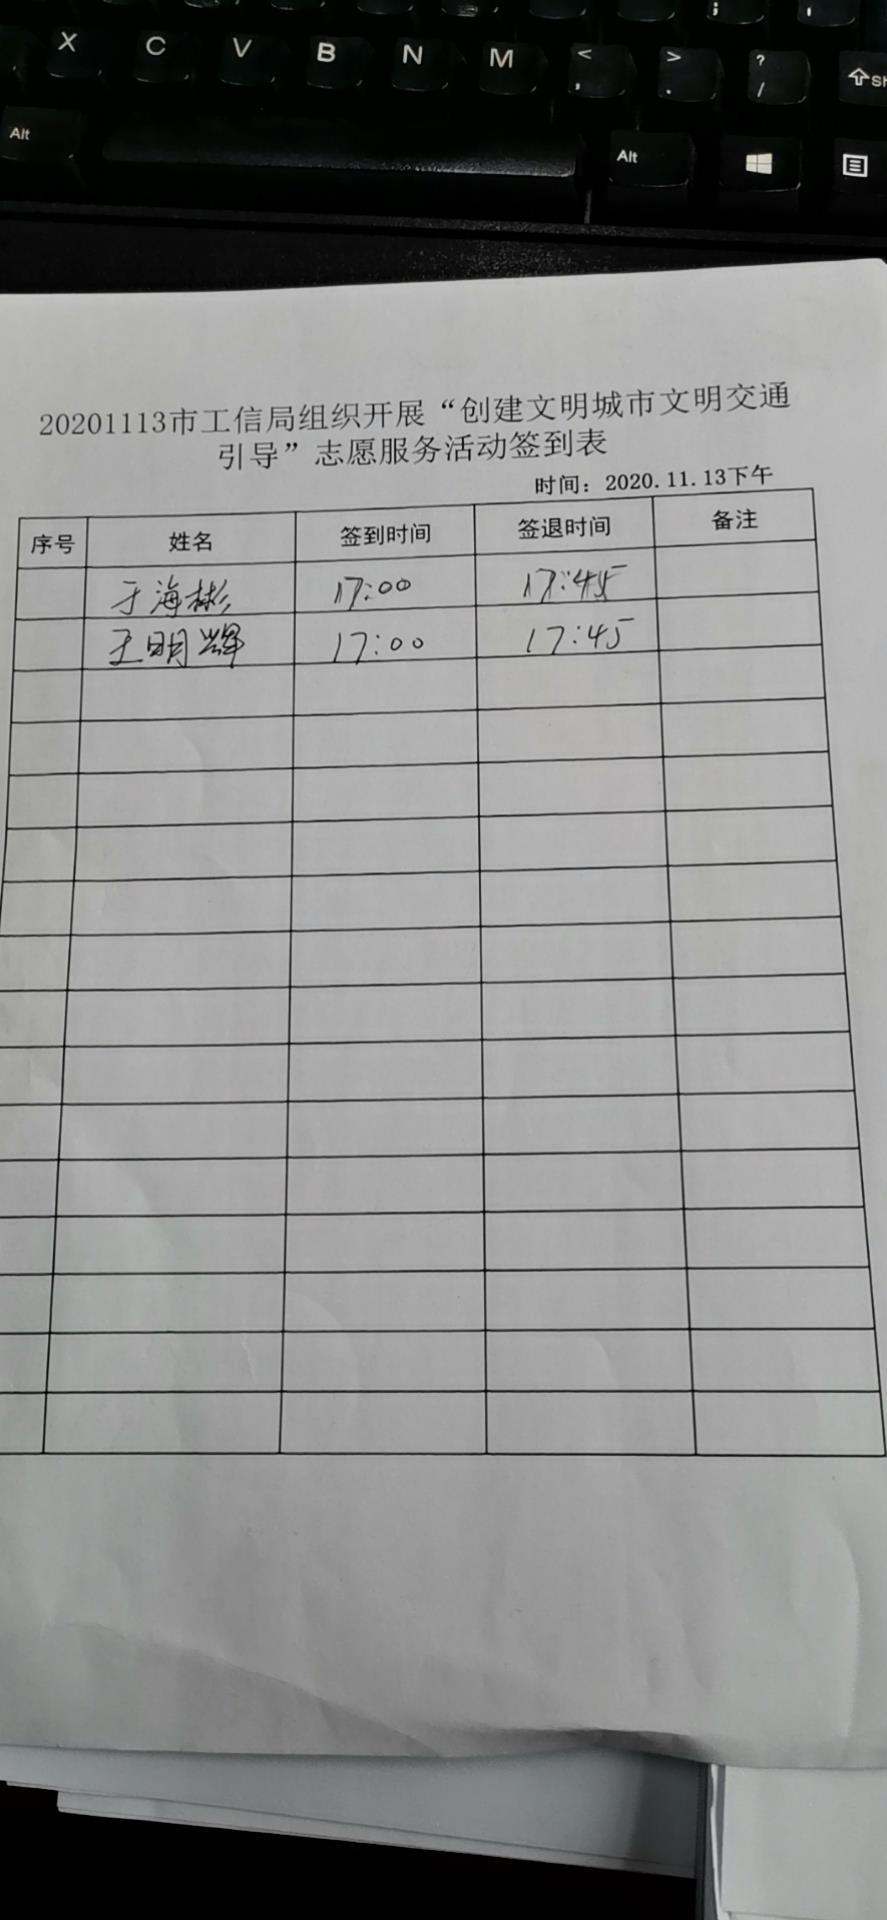 X C V B N M < , > . ? / ⇧SH
Alt Alt
20201113市工信局组织开展“创建文明城市文明交通
引导”志愿服务活动签到表
时间：2020.11.13下午
序号 姓名 签到时间 签退时间 备注
于海彬 17:00 17:45
王明辉 17:00 17:45